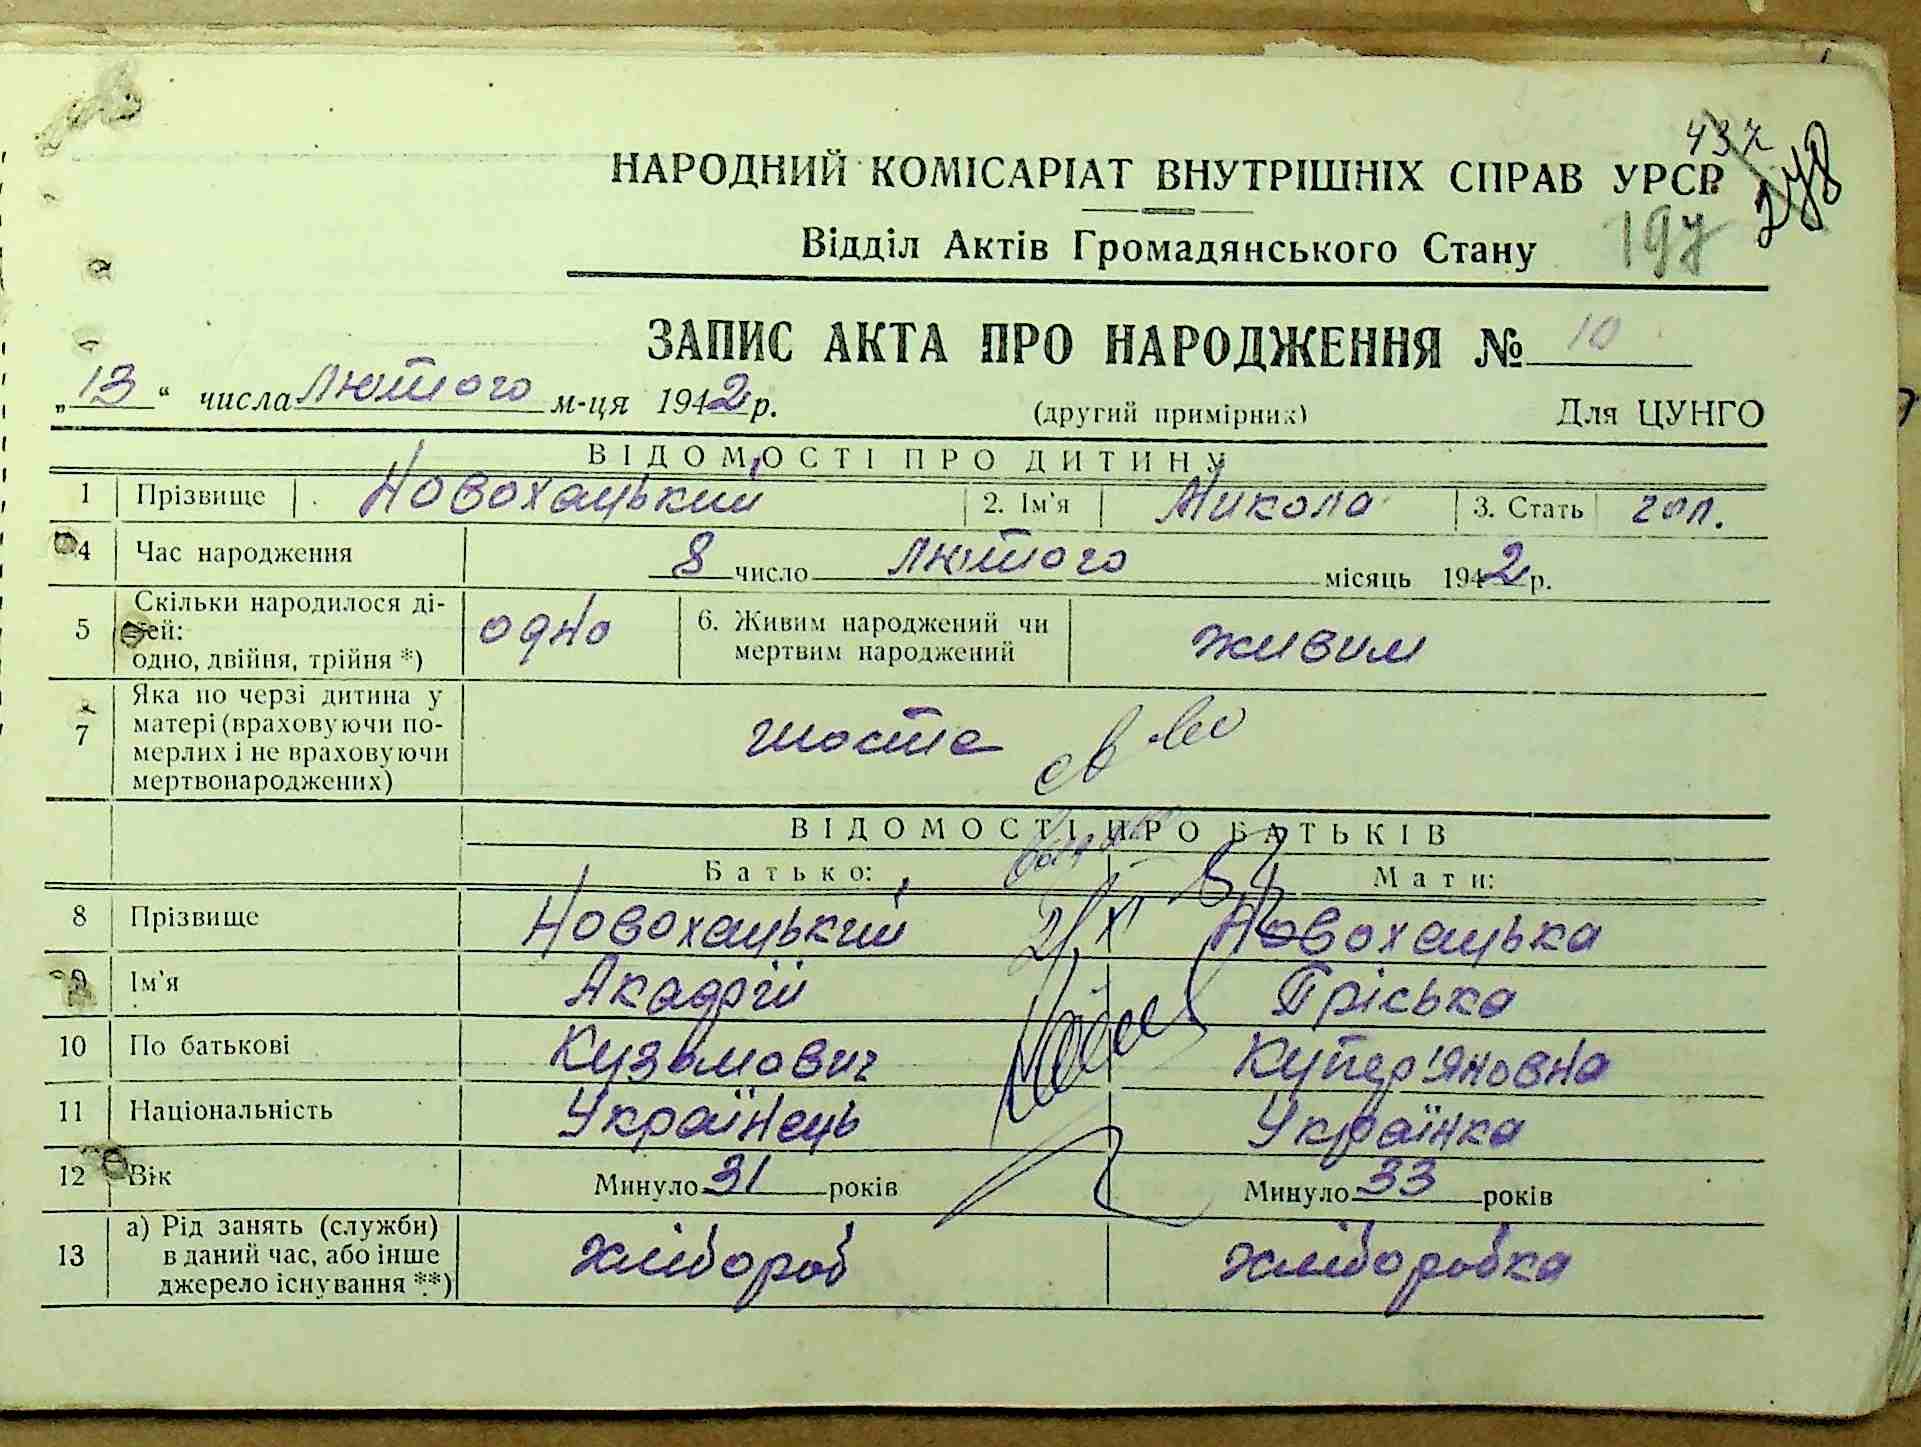 437
248
НАРОДНИЙ КОМІСАРІАТ ВНУТРІШНІХ СПРАВ УРСР
Відділ Актів Громадянського Стану 197
ЗАПИС АКТА ПРО НАРОДЖЕННЯ № 10
„13“ числа Лютого м-ця 1942 р. (другий примірник) Для ЦУНГО
ВІДОМОСТІ ПРО ДИТИНУ
1 Прізвище Новохацький 2. Ім'я Микола 3. Стать чол.
4 Час народження 8 число Лютого місяць 1942 р.
5 Скільки народилося ді-
тей:
одно, двійня, трійня *) одно 6. Живим народжений чи
мертвим народжений живим
7 Яка по черзі дитина у
матері (враховуючи по-
мерлих і не враховуючи
мертвонароджених) шоста
ВІДОМОСТІ ПРО БАТЬКІВ
Батько: Мати:
8 Прізвище Новохацький Новохацька
9 Ім'я Акадрій Пріська
10 По батькові Кузьмович Купер'яновна
11 Національність Українець Українка
12 Вік Минуло 31 років Минуло 33 років
13 а) Рід занять (служби)
в даний час, або інше
джерело існування **) хлібороб хліборобка